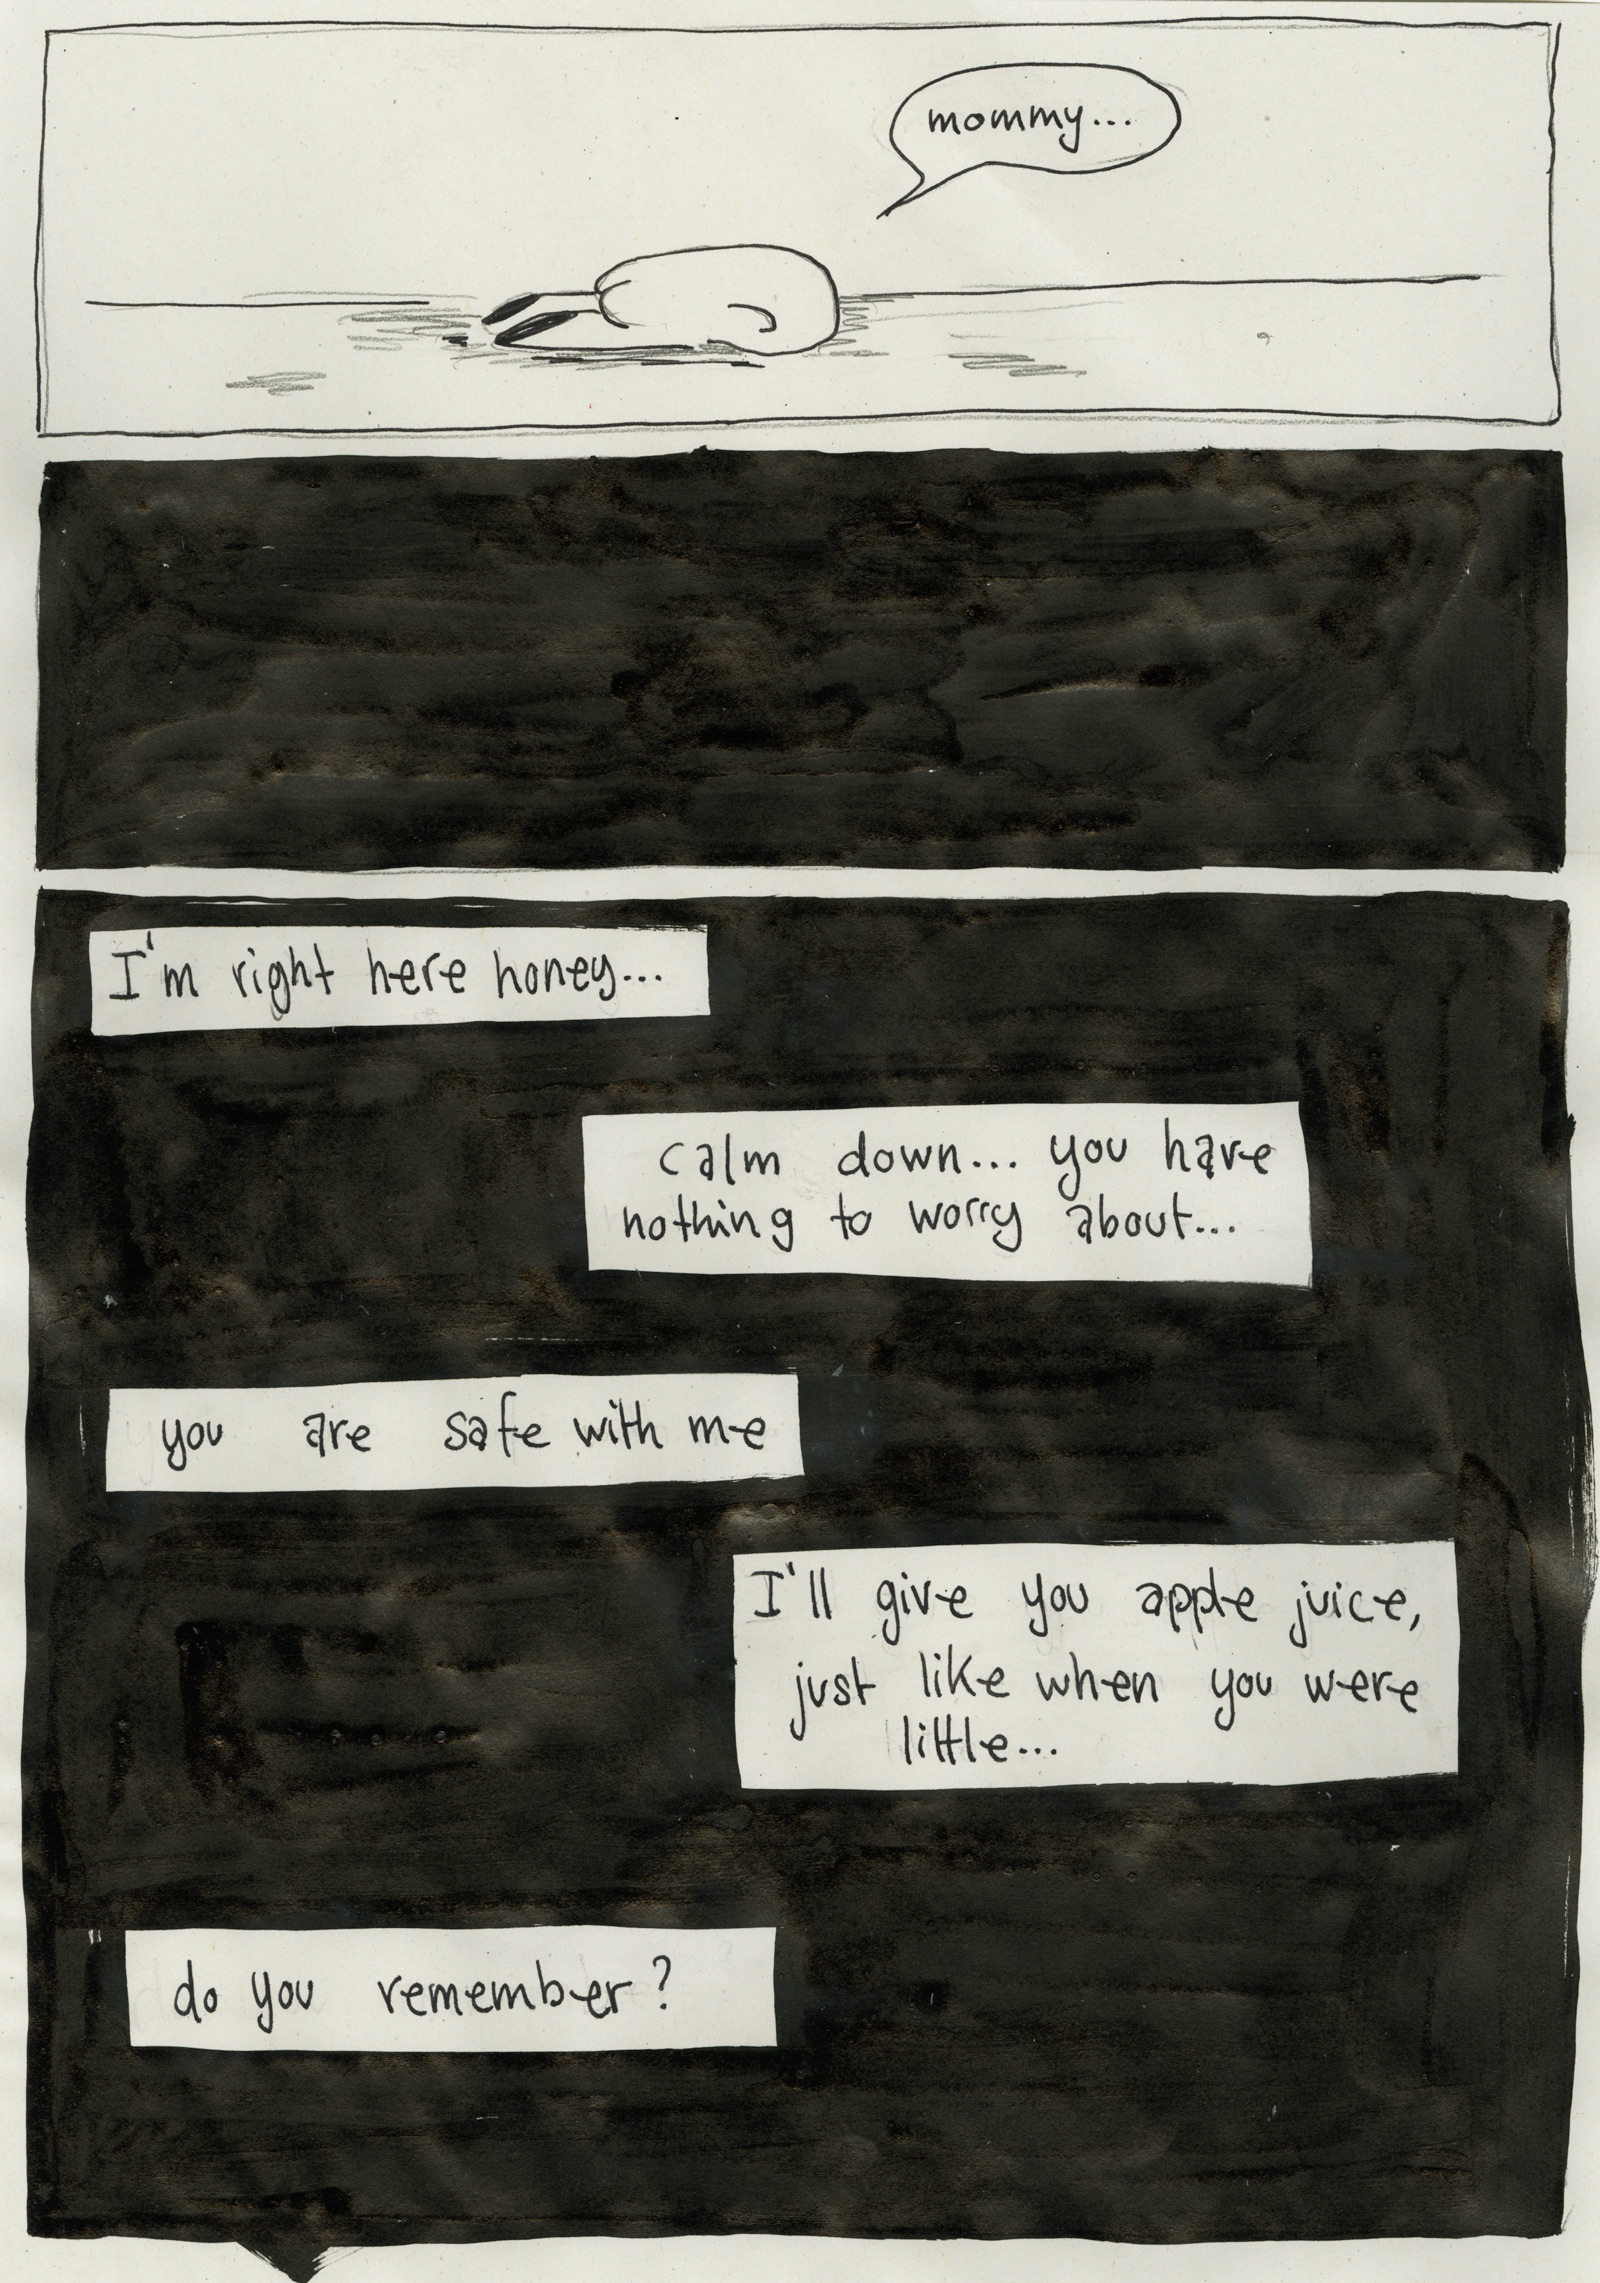 mommy...
I'm right here honey...
calm down... you have
nothing to worry about...
you are safe with me
I'll give you apple juice,
just like when you were
little...
do you remember?